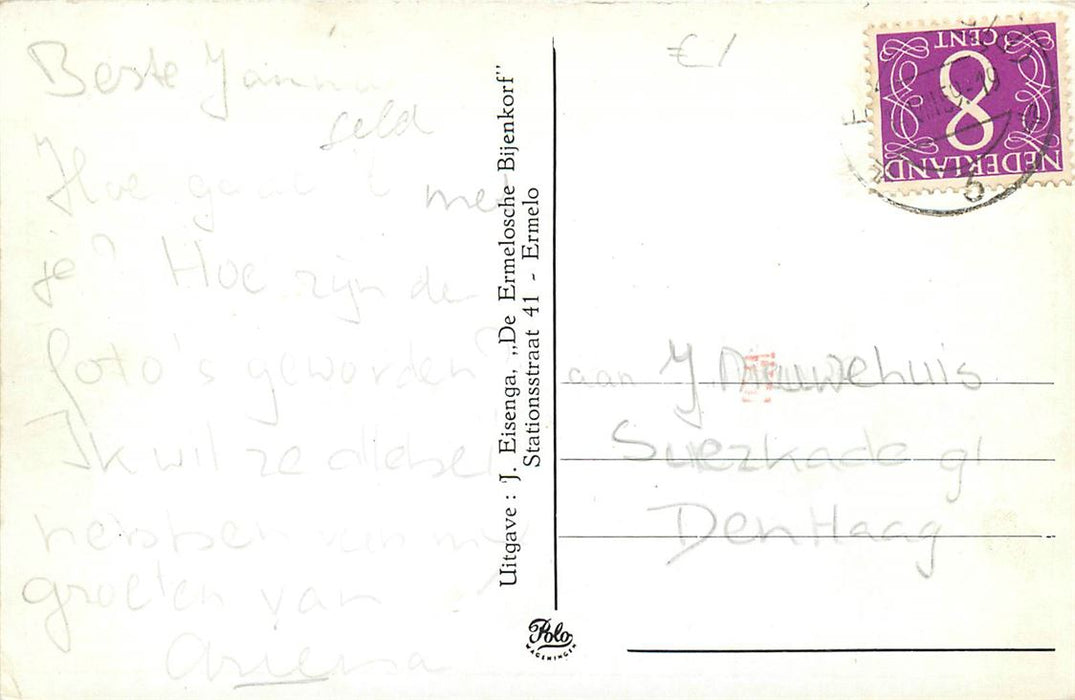 Beste
geld
Hoe gaat met
je? Hoe zijn de
foto's geworden?
Ik wil ze allebei
hebben van
groeten van
Uitgave : J. Eisenga, „De Ermelosche Bijenkorf"
Stationsstraat 41 - Ermelo
Polo
WAGENINGEN
€ 1
8
CENT
NEDERLAND
59-19
5
aan J Nieuwehuis
Suezkade 91
Den Haag